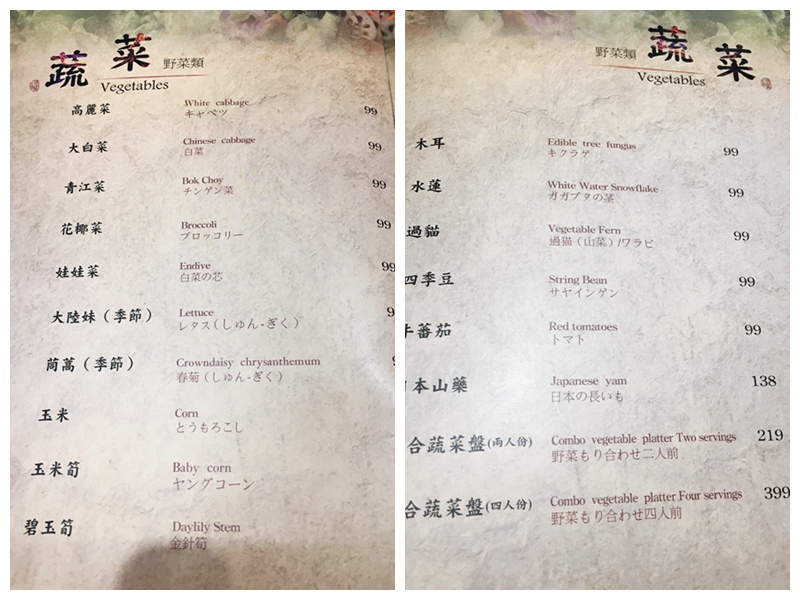 蔬菜 野菜類
Vegetables
高麗菜 White cabbage 99
キャベツ
大白菜 Chinese cabbage 99
白菜
青江菜 Bok Choy 99
チンゲン菜
花椰菜 Broccoli 99
ブロッコリー
娃娃菜 Endive 99
白菜の芯
大陸妹（季節） Lettuce 9
レタス(しゅん-ぎく)
茼蒿（季節） Crowndaisy chrysanthemum
春菊（しゅん-ぎく）
玉米 Corn
とうもろこし
玉米筍 Baby corn
ヤングコーン
碧玉筍 Daylily Stem
金針筍
野菜類 蔬菜
Vegetables
木耳 Edible tree fungus 99
キクラゲ
水蓮 White Water Snowflake 99
ガガブタの茎
過貓 Vegetable Fern 99
過猫（山菜）/ワラビ
四季豆 String Bean 99
サヤインゲン
牛蕃茄 Red tomatoes 99
トマト
本山藥 Japanese yam 138
日本の長いも
合蔬菜盤(兩人份) Combo vegetable platter Two servings 219
野菜もり合わせ二人前
合蔬菜盤(四人份) Combo vegetable platter Four servings 399
野菜もり合わせ四人前